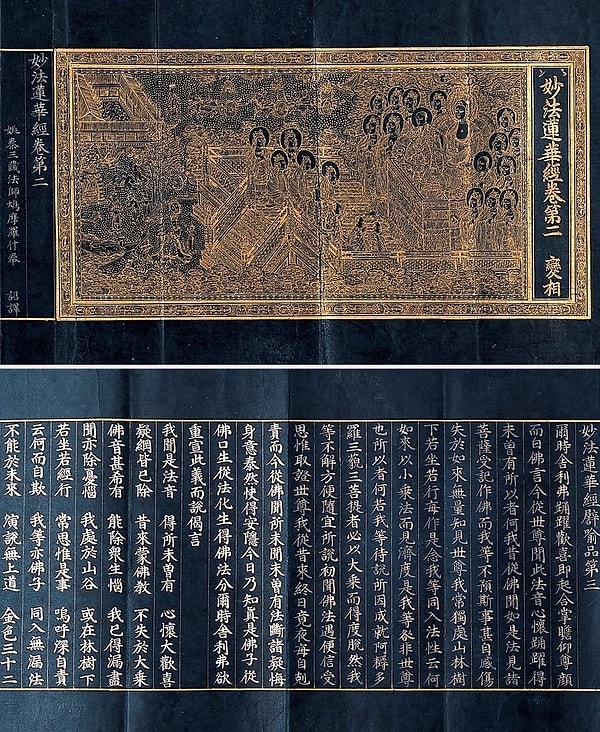 妙法蓮華經卷第二 變相
妙法蓮華經卷第二
姚秦三藏法師鳩摩羅什奉 詔譯
妙法蓮華經譬喻品第三
爾時舍利弗踊躍歡喜即起合掌瞻仰尊顏
而白佛言今從世尊聞此法音心懷踊躍得
未曾有所以者何我昔從佛聞如是法見諸
菩薩受記作佛而我等不預斯事甚自感傷
失於如來無量知見世尊我常獨處山林樹
下若坐若行每作是念我等同入法性云何
如來以小乘法而見濟度是我等咎非世尊
也所以者何若我等待說所因成就阿耨多
羅三藐三菩提者必以大乘而得度脫然我
等不解方便隨宜所說初聞佛法遇便信受
思惟取證世尊我從昔來終日竟夜每自剋
責而今從佛聞所未聞未曾有法斷諸疑悔
身意泰然快得安隱今日乃知真是佛子從
佛口生從法化生得佛法分爾時舍利弗欲
重宣此義而說偈言
我聞是法音 得所未曾有 心懷大歡喜
疑網皆已除 昔來蒙佛教 不失於大乘
佛音甚希有 能除衆生惱 我已得漏盡
聞亦除憂惱 我處於山谷 或在林樹下
若坐若經行 常思惟是事 嗚呼深自責
云何而自欺 我等亦佛子 同入無漏法
不能於未來 演說無上道 金色三十二